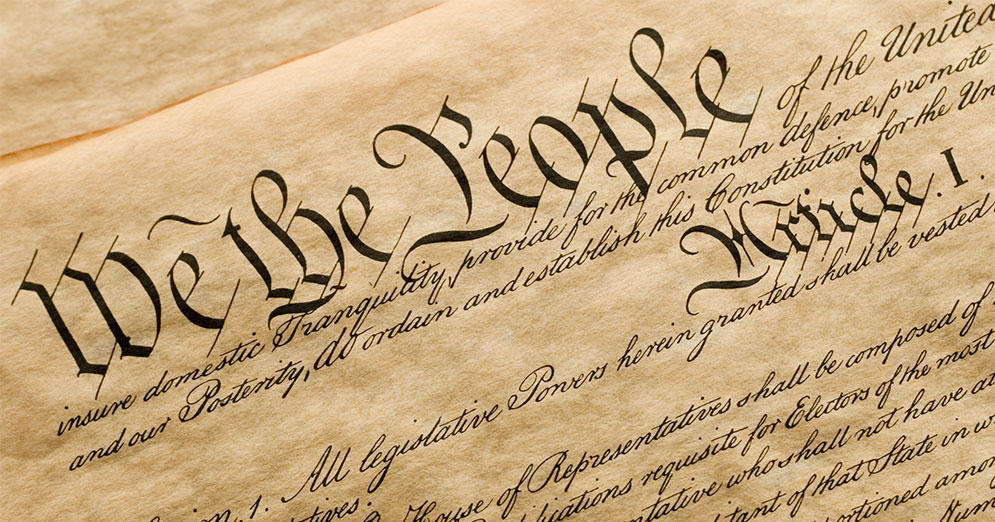 We the People of the United
insure domestic Tranquility, provide for the common defence, promote
and our Posterity, do ordain and establish this Constitution for the Un
Article. I.
on. 1. All legislative Powers herein granted shall be vested
tives.
House of Representatives shall be composed of
ications requisite for Electors of the most
ntative who shall not have at
tant of that State in w
ortioned amon
Num